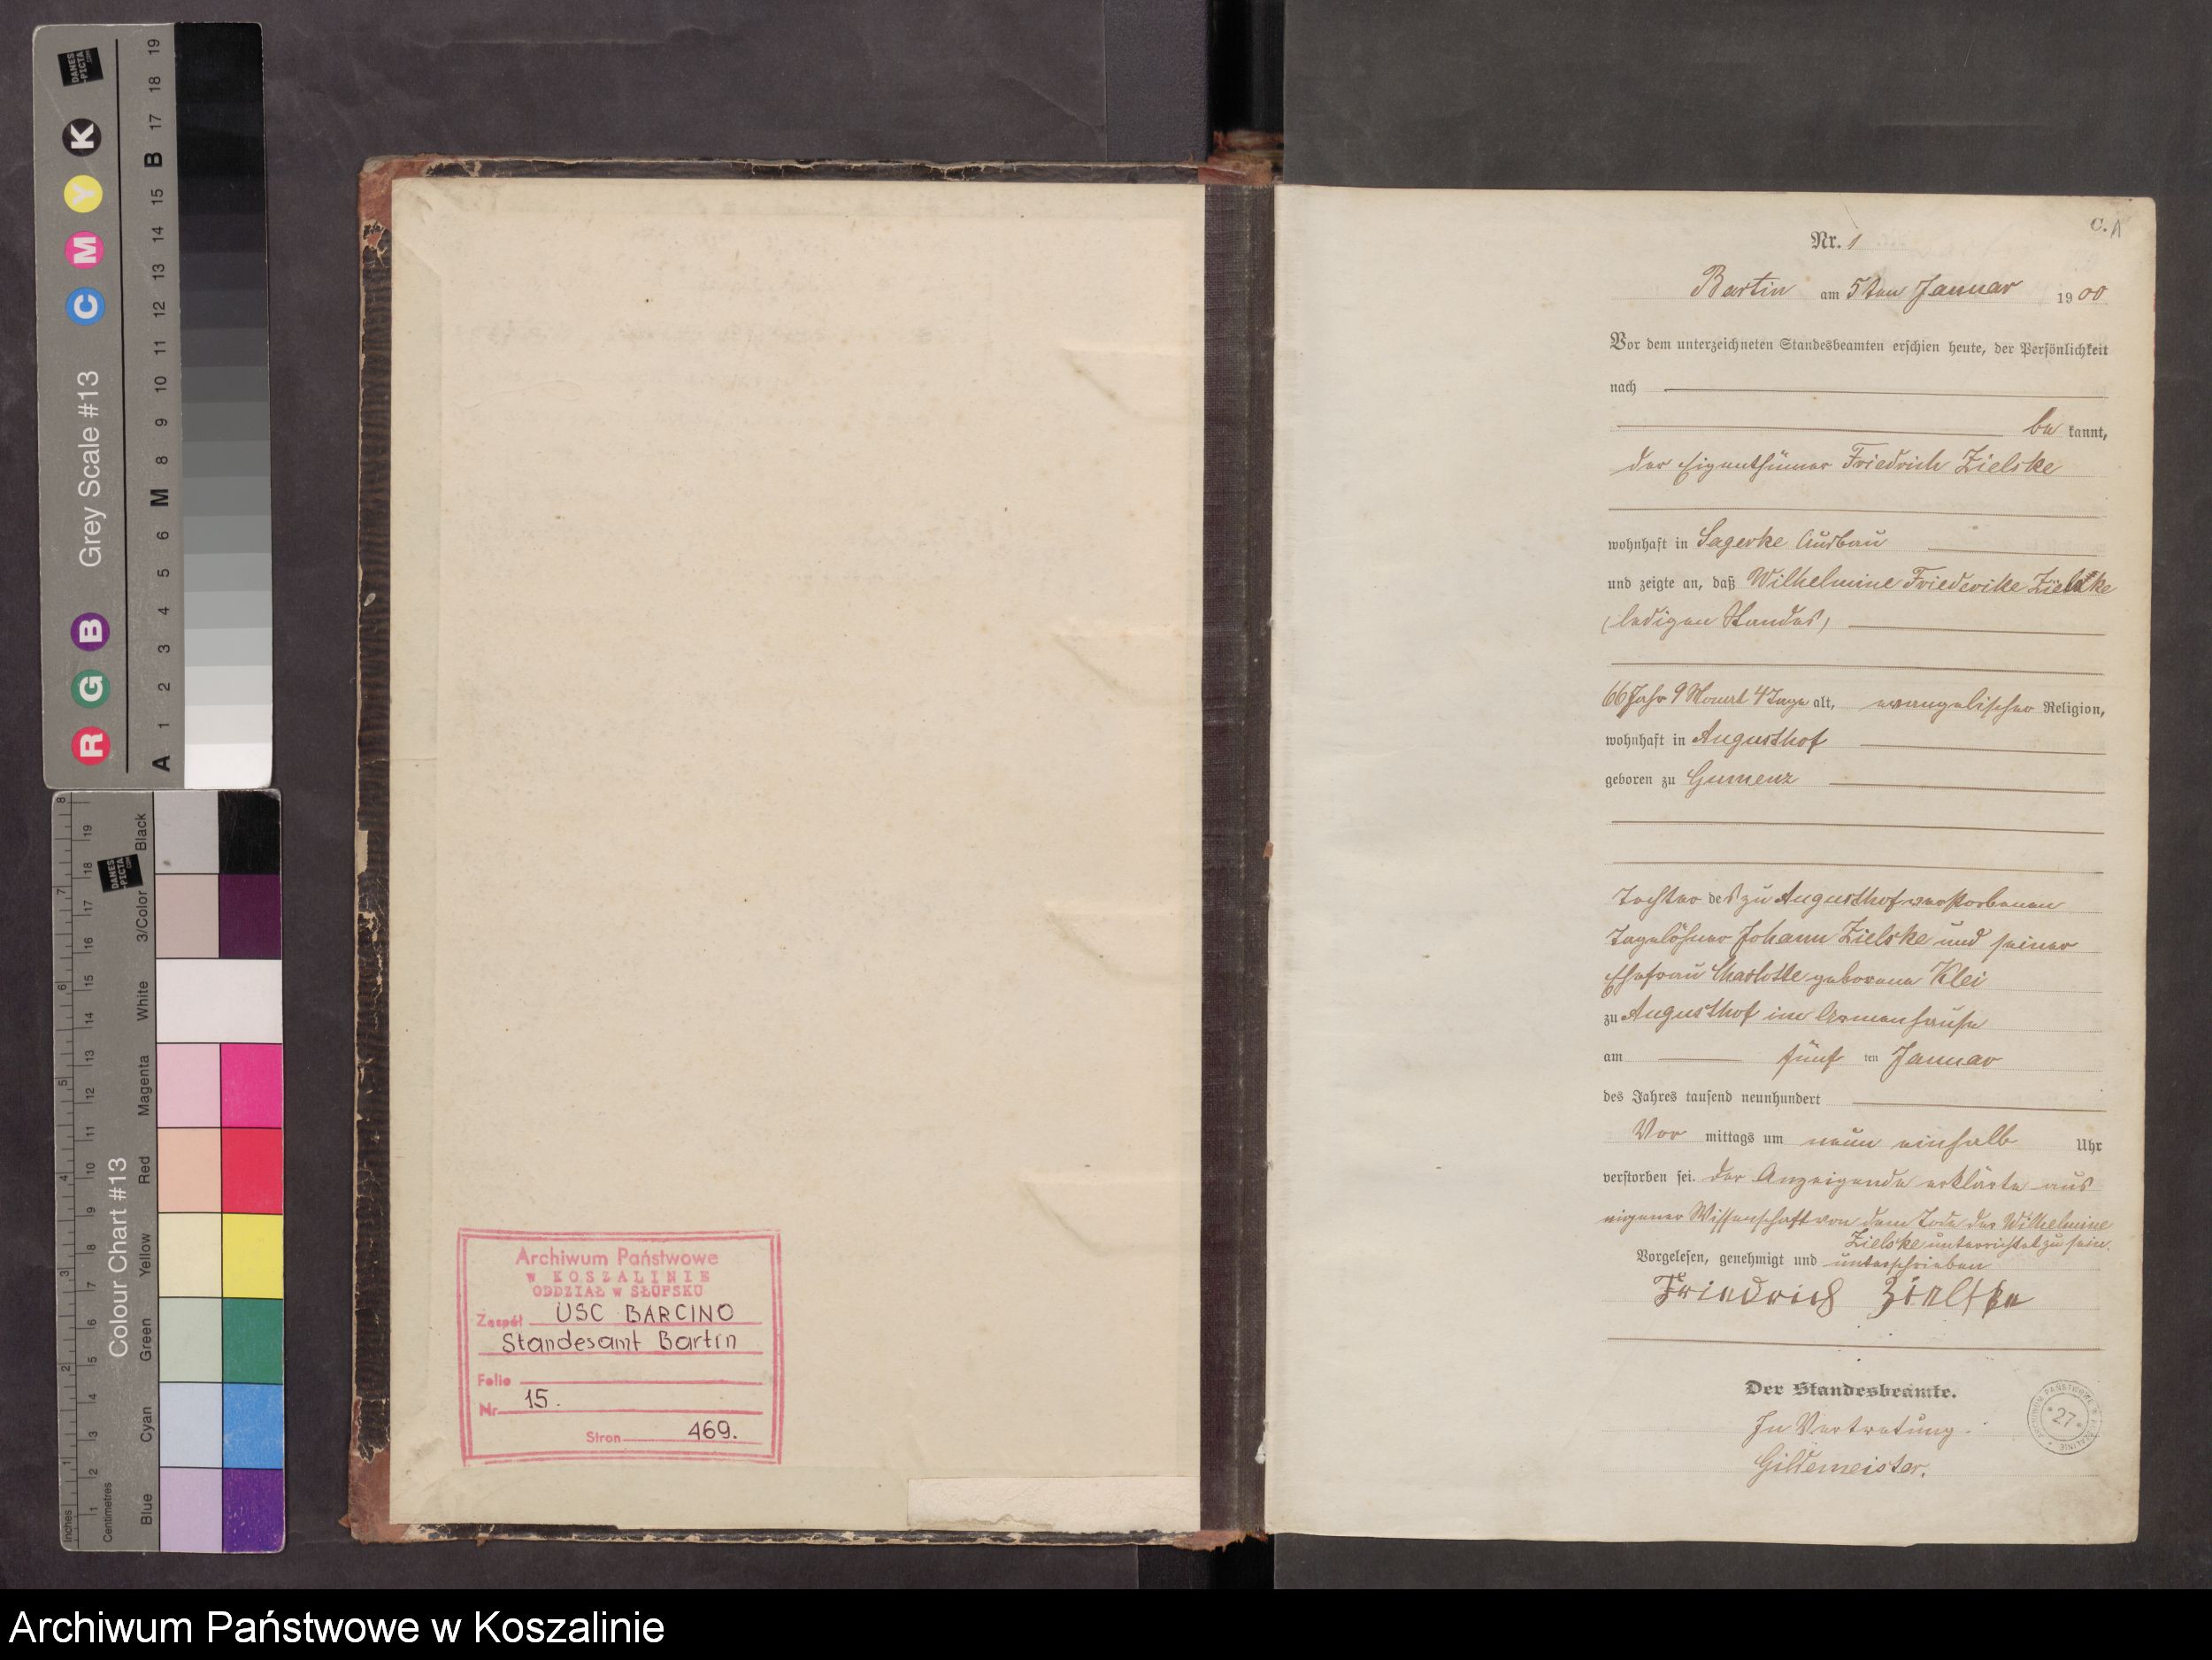 DANES
-PICTA
.COM
R G B Grey Scale #13 C M Y K
A 1 2 3 4 5 6 M 8 9 10 11 12 13 14 15 B 17 18 19
Colour Chart #13
DANES
-PICTA
.COM
Inches 1 2 3 4 5 6 7 8
Centimetres 1 2 3 4 5 6 7 8 9 10 11 12 13 14 15 16 17 18 19
Blue Cyan Green Yellow Red Magenta White 3/Color Black
Archiwum Państwowe
W KOSZALINIE
ODDZIAŁ w SŁUPSKU
Zespół USC BARCINO
Standesamt Bartin
Folio
Nr 15.
Stron 469.
C. 1
Nr. 1
Bartin am 5ten Januar 1900
Vor dem unterzeichneten Standesbeamten erschien heute, der Persönlichkeit
nach
be kannt,
der Eigenthümer Friedrich Zielske
wohnhaft in Sagerke Ausbau
und zeigte an, daß Wilhelmine Friederike Zielske
(ledigen Standes)
66 Jahr 9 Monat 4 Tage alt, evangelischer Religion,
wohnhaft in Augusthof
geboren zu Gumenz
Tochter des zu Augusthof verstorbenen
Tagelöhner Johann Zielske und seiner
Ehefrau Charlotte geborene Klei
zu Augusthof im Armenhause
am fünf ten Januar
des Jahres tausend neunhundert
Vor mittags um neun einhalb Uhr
verstorben sei. Der Anzeigende erklärte aus
eigener Wissenschaft von dem Tode der Wilhelmine
Zielske unterrichtet zu sein.
Vorgelesen, genehmigt und unterschrieben
Friedrich Zielske
Der Standesbeamte.
In Vertretung.
Gildemeister.
ARCHIWUM PAŃSTWOWE W KOSZALINIE
* 27 *
Archiwum Państwowe w Koszalinie